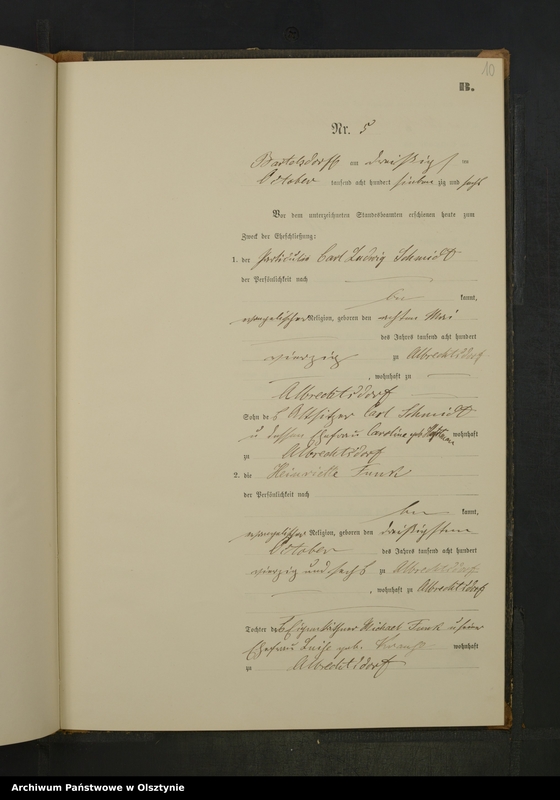 10
B.
Nr. 5
Bartelsdorff am dreißigsten
October tausend acht hundert sieben zig und sechs
Vor dem unterzeichneten Standesbeamten erschienen heute zum
Zweck der Eheschließung:
1. der Carl Ludwig Schmidt
der Persönlichkeit nach
be kannt,
evangelischer Religion, geboren den achten Mai
des Jahres tausend acht hundert
vierzig zu Albrechtsdorf
, wohnhaft zu
Albrechtsdorf
Sohn des Altsitzer Carl Schmidt
u dessen Ehefrau Caroline geb. wohnhaft
zu Albrechtsdorf
2. die Heinriette Funk
der Persönlichkeit nach
be kannt,
evangelischer Religion, geboren den dreißigsten
October des Jahres tausend acht hundert
vierzig und sechs zu Albrechtsdorf
, wohnhaft zu Albrechtsdorf
Tochter des Eigenkäthner Michael Funk u seiner
Ehefrau Luise geb. wohnhaft
zu Albrechtsdorf
Archiwum Państwowe w Olsztynie